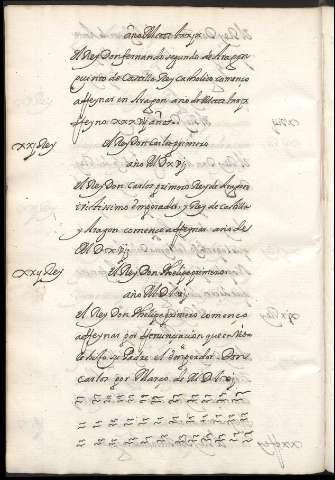 año M cccc lxxix
El Rey Don fernando segundo de Aragon
quinto de Castilla Rey catholico comenco
a Reynar en Aragon año de M cccc lxxix
Reyno xxxvij años
xxj Rey
El Rey Don Carlos primero
año M D xvj
El Rey Don Carlos primero Rey de Aragon
emperador y Rey de Castilla
y Aragon comenco a Reynar año de
M D xvj
xxij Rey
El Rey Don Phelipe primero
año M D lvj
El Rey Don Phelipe primero comenco
a Reynar por Renunciacion que en
hizo su Padre el emperador Don
Carlos por Março de M D lvj